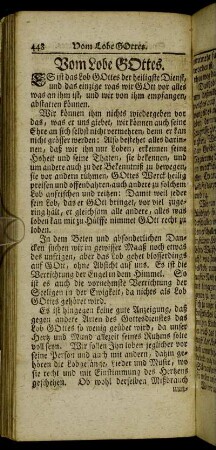 448 Vom Lobe GOttes.
Vom Lobe GOttes.
ES ist das Lob GOttes der heiligste Dienst,
und das einzige was wir GOtt vor alles
was an ihm ist, und wir von ihm empfangen,
abstatten können.
Wir können ihm nichts wiedergeben vor
das, was er uns giebet, wir können auch seine
Ehre an sich selbst nicht vermehren, denn er kan
nicht grösser werden: Also bestehet alles darin-
nen, daß wir ihm nur Loben, erkennen seine
Hoheit und seine Thaten, sie bekennen, und
um andere auch zu der Bekentniß zu bewegen,
sie vor andern rühmen, GOttes Werck heilig
preisen und offenbahren, auch andere zu solchem
Lob anfrischen und reitzen: Damit weil jeder
sein Lob, das er GOtt bringet, vor viel zuge-
ring hält, er gleichsam alle andere, alles was
Leben hat mit zu Hülffe nimmet GOtt recht zu
loben.
In dem Beten und absonderlichen Dan-
cken suchen wir in gewisse Maaß noch etwas
des unsrigen, aber das Lob gehet blosserdings
auf GOtt, ohne Absicht auf uns. Es ist die
Verrichtung der Engel in dem Himmel. So
ist es auch die vornehmste Verrichtung der
Seeligen in der Ewigkeit, da nichts als Lob
GOttes gehöret wird.
Es ist hingegen keine gute Anzeigung, daß
gegen andere Arten des Gottesdienstes das
Lob GOttes so wenig geübet wird, da unser
Hertz und Mund allezeit seines Ruhms solte
voll seyn. Wir sollen Ihn loben jeglicher vor
seine Person und auch mit andern; dahin ge-
hören die Lobgesänge, Lieder und Music, wo
sie recht und mit Einstimmung des Hertzens
geschehen. Ob wohl derselben Mißbrauch